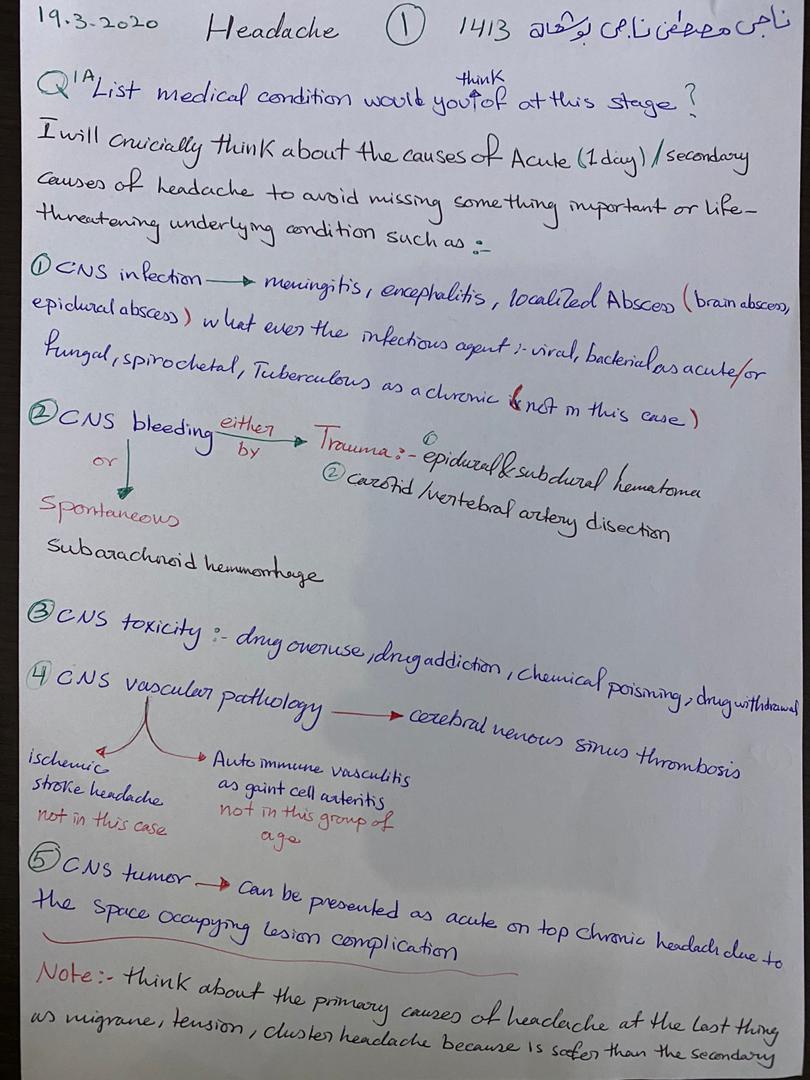 19.3.2020 Headache ① 1413 ناجي مصطفى ناجي
Q1A List medical condition would you think of at this stage?
I will cruicially think about the causes of Acute (1day)/secondary
causes of headache to avoid missing something important or life-
threatening underlying condition such as :-
① CNS infection → meningitis, encephalitis, localized Abscess (brain abscess,
epidural abscess) what ever the infectious agent :- viral, bacterial as acute/or
fungal, spirochetal, Tuberculous as a chronic (not in this case)
② CNS bleeding either by → Trauma :- ① epidural & subdural hematoma
② carotid /vertebral artery disection
or
Spontaneous
subarachnoid hemmorrhage
③ CNS toxicity :- drug overuse, drug addiction, chemical poisining, drug withdrawal
④ CNS vascular pathology → cerebral venous sinus thrombosis
ischemic
stroke headache
not in this case
Auto immune vasculitis
as gaint cell arteritis
not in this group of
age
⑤ CNS tumor → can be presented as acute on top chronic headach due to
the space occupying lesion complication
Note :- think about the primary causes of headache at the last thing
as migrane, tension, cluster headache because is safer than the secondary